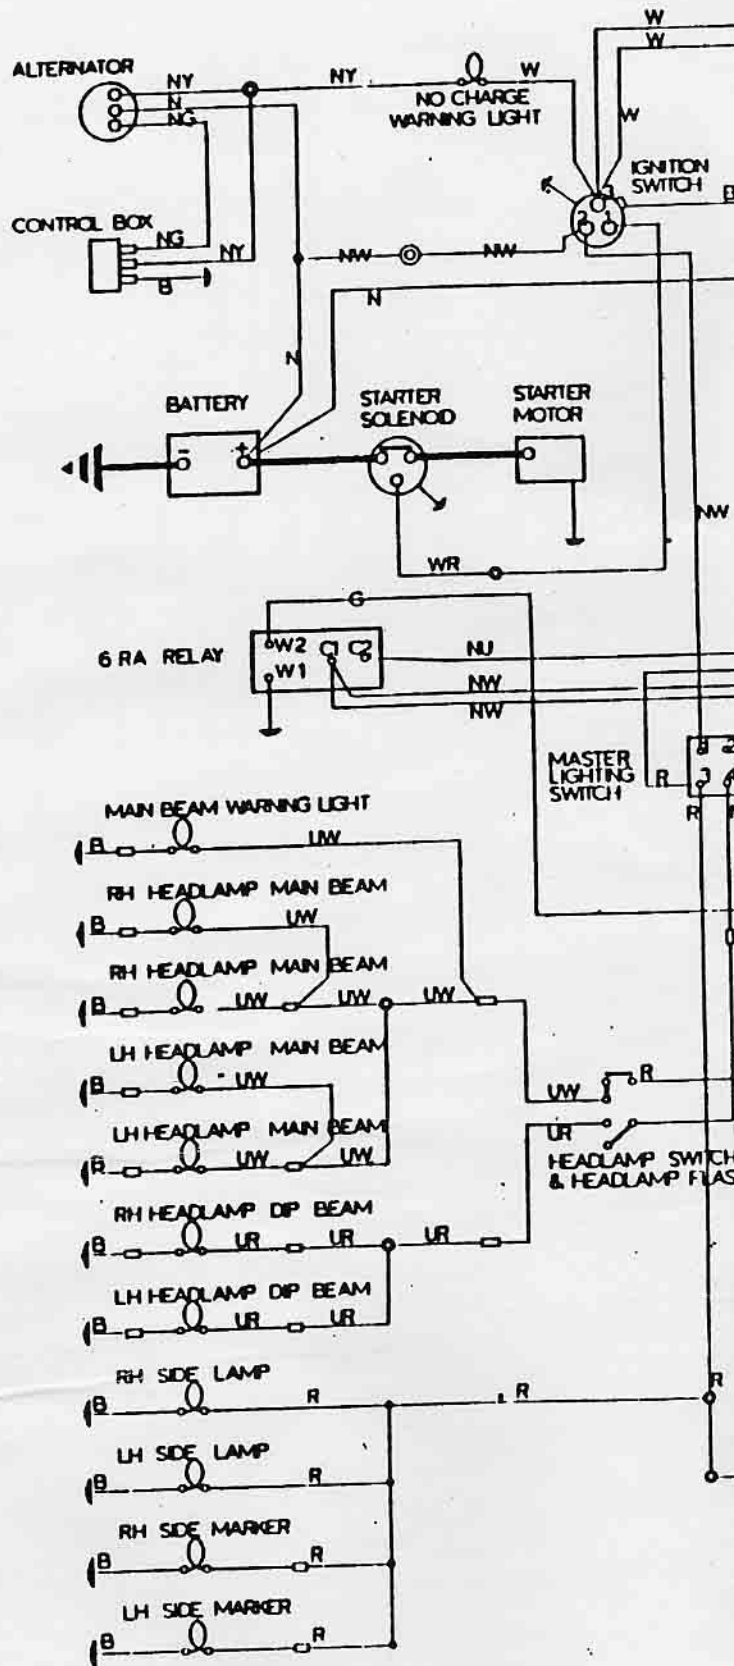 W
W
ALTERNATOR
NY
NY
W
N
NG
NO CHARGE
WARNING LIGHT
W
IGNITION
SWITCH
3
2
1
CONTROL BOX
NG
NY
B
NW
NW
N
N
BATTERY
STARTER
SOLENOID
STARTER
MOTOR
-
+
NW
WR
G
6 RA RELAY
W2
C1
C2
W1
NU
NW
NW
MASTER
LIGHTING
SWITCH
R
1
2
3
4
R
MAIN BEAM WARNING LIGHT
B
UW
RH HEADLAMP MAIN BEAM
B
UW
RH HEADLAMP MAIN BEAM
B
UW
UW
UW
LH HEADLAMP MAIN BEAM
B
UW
UW
R
LH HEADLAMP MAIN BEAM
B
UW
UW
UR
HEADLAMP SWITCH
& HEADLAMP FLAS
RH HEADLAMP DIP BEAM
B
UR
UR
UR
LH HEADLAMP DIP BEAM
B
UR
UR
RH SIDE LAMP
B
R
R
R
LH SIDE LAMP
B
R
RH SIDE MARKER
B
R
LH SIDE MARKER
B
R